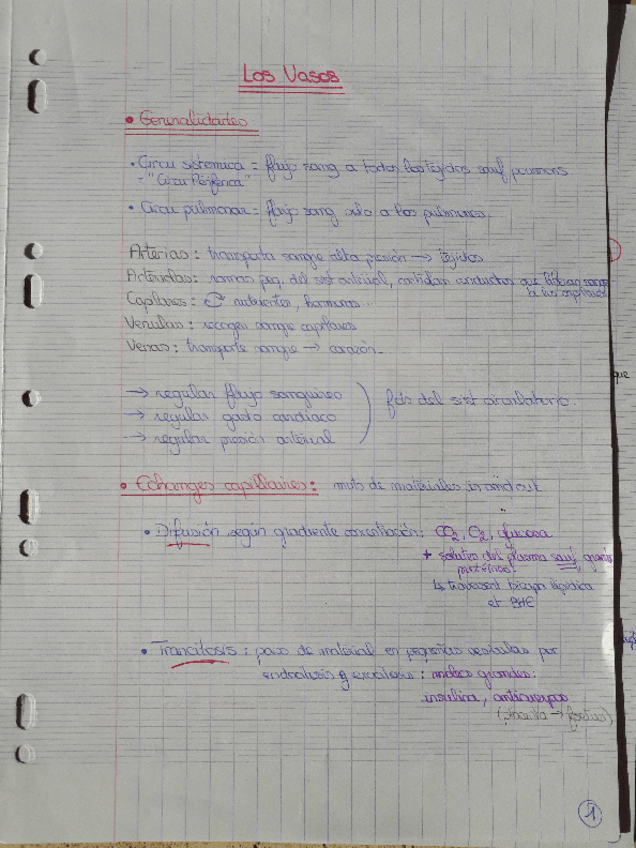 Los Vasos
• Generalidades
• Circu sistemica = flujo sang a todos los tejidos sauf poumons
= "Circu Periferica"
• Circu pulmonar = flujo sang solo a los pulmones.
Arterias : transporta sangre alta presión → tejidos
Arteriolas : ramas peq. del sist arterial, conductos que sangre
a los capilares
Capilares : nutrientes, hormonas...
Venulas : recogen sangre capilares
Venas : transporte sangre → corazón.
→ regular flujo sanguineo
→ regular gasto cardiaco
→ regular presión arterial
fcts del sist circulatorio.
• Echanges capillaires : mvts de materiales in and out
• Difusión según gradiente concentración : CO2, O2, glucosa
+ solutos del plasma sauf grands
proteinas
↳ travesent bicapa lipidica
et BHE
• Trancitosis : paso de material en pequeñas vesiculas por
endocitosis y exocitosis : molecs grandes :
insulina, anticuerpos
(placenta → foetus)
1
que